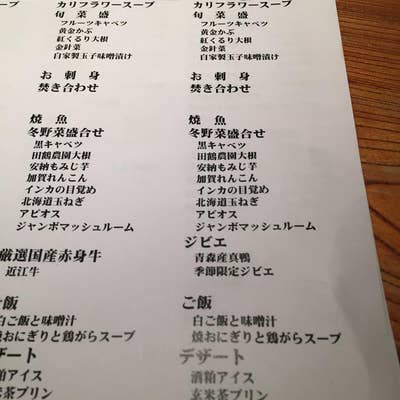 カリフラワースープ
旬菜盛
フルーツキャベツ
黄金かぶ
紅くるり大根
金針菜
自家製玉子味噌漬け
お刺身
焚き合わせ
焼魚
冬野菜盛合せ
黒キャベツ
田鶴農園大根
安納もみじ芋
加賀れんこん
インカの目覚め
北海道玉ねぎ
アピオス
ジャンボマッシュルーム
厳選国産赤身牛
近江牛
ご飯
白ご飯と味噌汁
焼おにぎりと鶏がらスープ
デザート
酒粕アイス
玄米茶プリン
カリフラワースープ
旬菜盛
フルーツキャベツ
黄金かぶ
紅くるり大根
金針菜
自家製玉子味噌漬け
お刺身
焚き合わせ
焼魚
冬野菜盛合せ
黒キャベツ
田鶴農園大根
安納もみじ芋
加賀れんこん
インカの目覚め
北海道玉ねぎ
アピオス
ジャンボマッシュルーム
ジビエ
青森産真鴨
季節限定ジビエ
ご飯
白ご飯と味噌汁
焼おにぎりと鶏がらスープ
デザート
酒粕アイス
玄米茶プリン